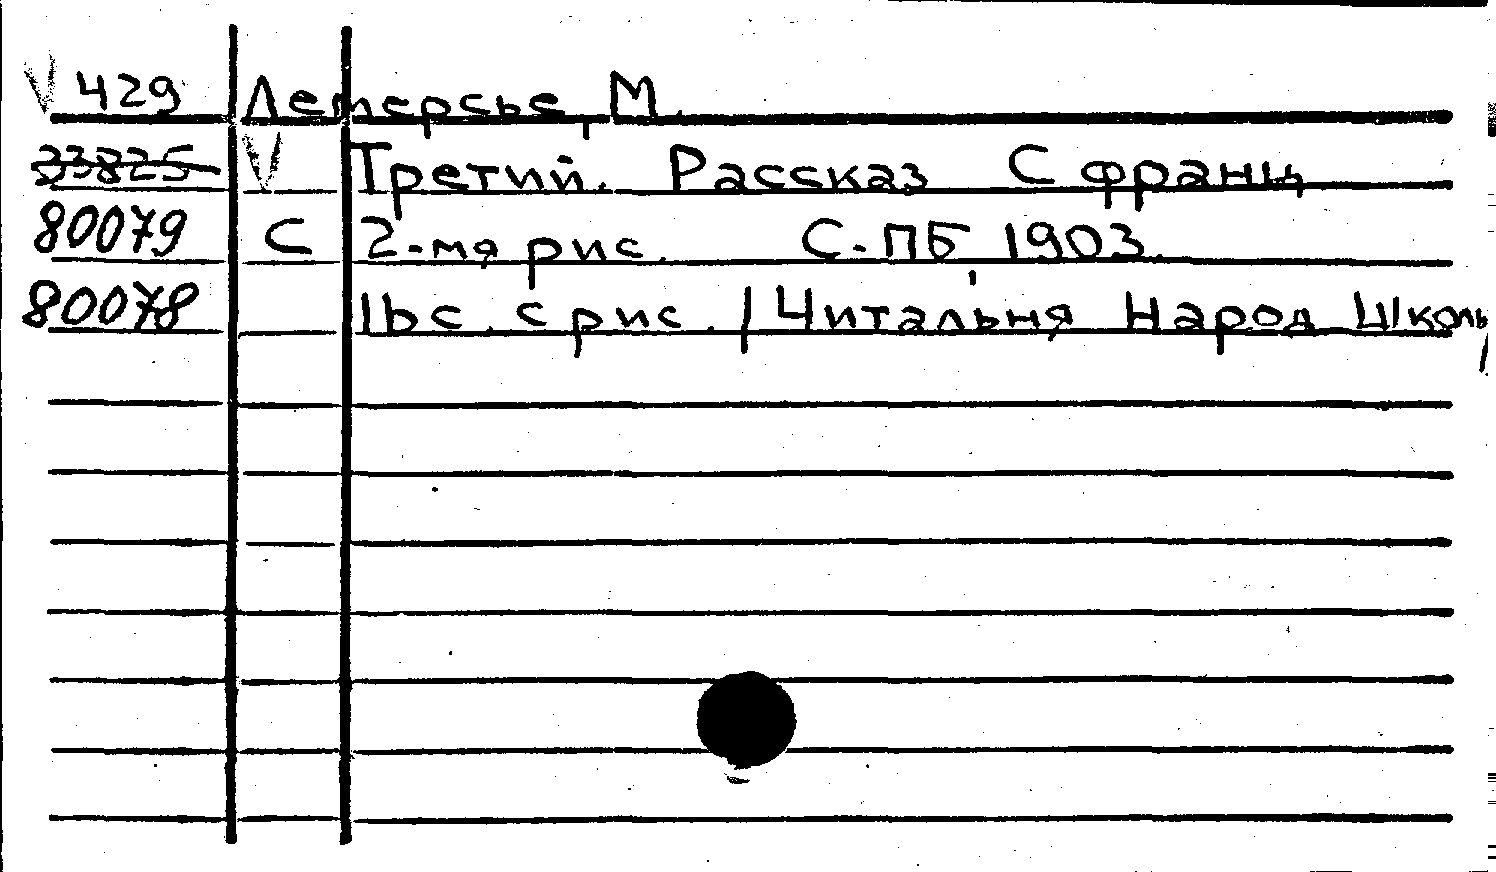 V 429 Летерсье, М.
33825 V Третий. Рассказ С франц
80079 С 2-мя рис. С-ПБ, 1903.
80078 16с. с рис. /Читальня Народ Школы/